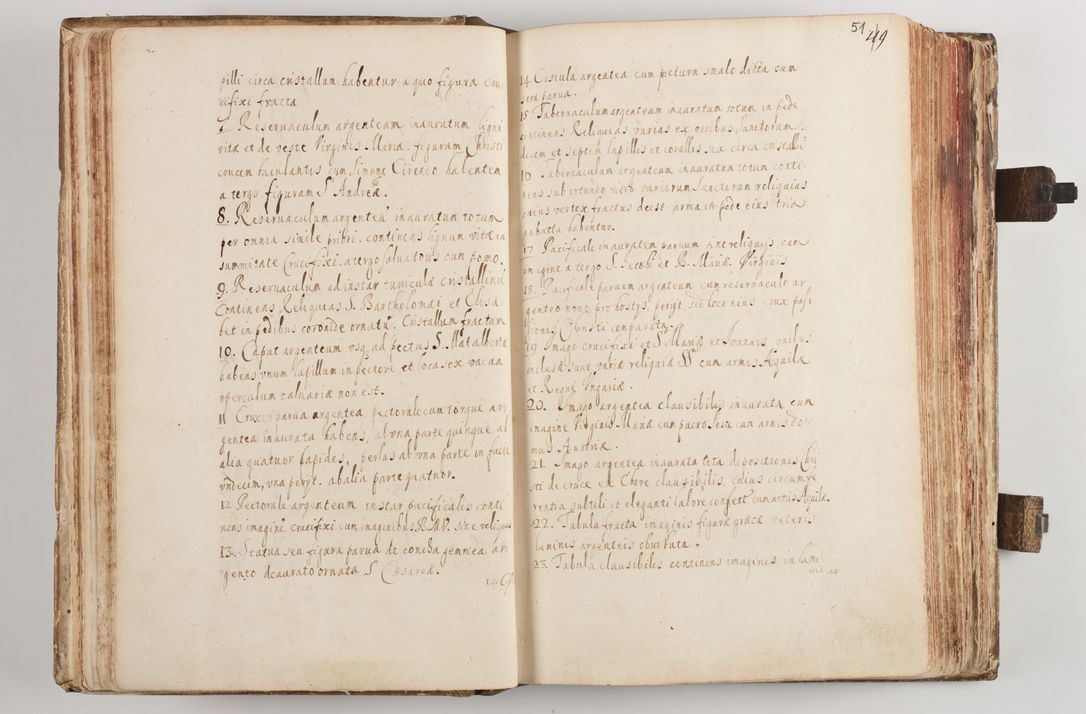 pilli circa cristallum habentur a quo figura cru
cifixi fracta
Reseruaculum argenteum inauratum ligni
vitæ et de veste Virginis Mariæ. figuram Christi
crucem baiulantis cum Simone Cireneo habentem
a tergo figuram S. Andreæ.
8. Reseruaculum argenteũ inauratum totum
per omnia simile priori. continens lignum vitæ in
summitate Crucifixi. a tergo saluatoris cum pomo.
9. Reseruaculum ad instar turriculæ cristallinũ
Continens Reliquias S. Bartholomæi et Elisa
bet in pedibus coronide ornatũ. Cristallum fractum
10. Caput argenteum usq ad pectus S.
habens vnum lapillum in pectore et loca sex vacua
operculum caluariæ non est.
11 Crucem parua argentea, pectorale cum torque ar
gentea inaurata habens, ab vna parte quinque ab
alia quatuor lapides, perlas ab vna parte in facie
vndecim, vna peryt. ab alia parte quatuor.
12 Pectorale argenteum instar pacificalis conti
nens imaginẽ crucifixi cum imaginibus B. M.V. sine reliquijs
13. Statua seu figura parua de concha gemmea ar
gento deaurato ornata S. Cæsareæ.
14. Cis
51 49
14 Cistula argentea cum pictura smalc dicta cum
sera parua.
15 Tabernaculum argenteum inauratum totum in pede
continens Reliquias varias ex ossibus Sanctorum
decem et septem lapillis et corallis sex circa cristalli
16 Tabernaculum argenteum inauratum totum conti
nens sub rotundo vitro variorum Sanctorum reliquias
cuius vertex fractus deest arma in pede eius tria
gabatta habentur.
17 Pacificale inauratum paruum sine reliquijs cum
imagine a tergo S. Jacobi et B. Mariæ Virginis
18. Pacificale paruum argenteum cum reseruaculo ar
genteo nouo pro hostys. peryt. sed loco eius crux pasi
sionis Christi comparata.
19 Imago crucifixi et S. Mariæ et Joannis quibus
inclusæ sunt variæ reliquiæ SS cum armis Aquilæ
et Regni Vngariæ.
20. Imago argentea clausibilis inaurata cum
imagine Virginis Mariæ cum puero Jesu cum armis do
mus Austriæ.
21. Imago argentea inaurata tota depositionis Chri
sti de cruce ex Ebore clausibilis, cuius circumfe
rentia subtili et eleganti labore confett cum armis Aquilæ.
22. Tabula fracta imaginis figuræ græcæ veteris
laminis argenteis obuoluta.
23. Tabula clausibilis continens imagines in lami
nis ar